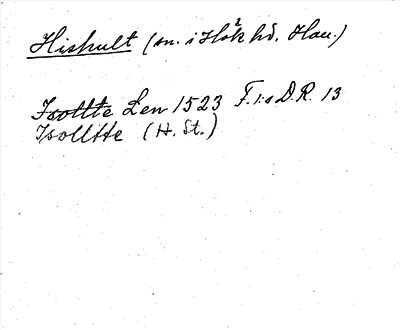 Hishult (sn. i Hök hd. Hall.)
Isollte Len 1523 F.I:s D.R. 13
Isolltte (H. St.)